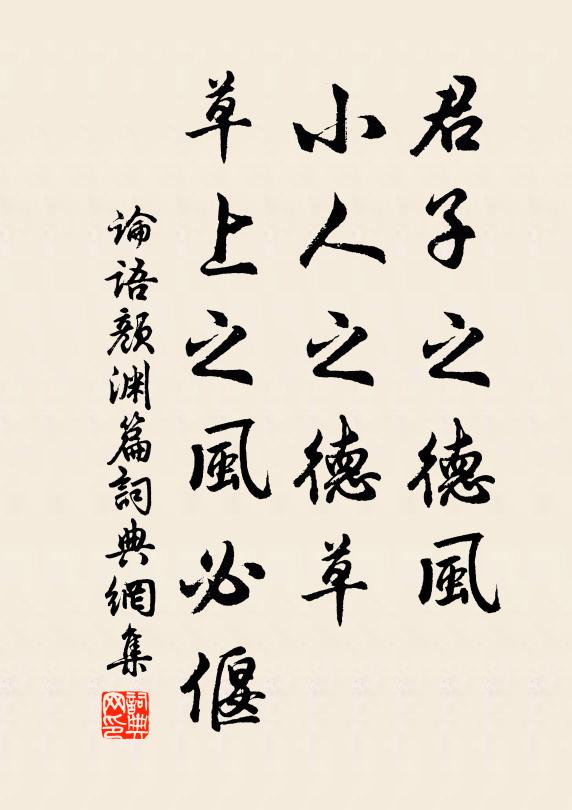 君子之德風
小人之德草
草上之風必偃
论语顏渊篇詞典網集
詞典网印